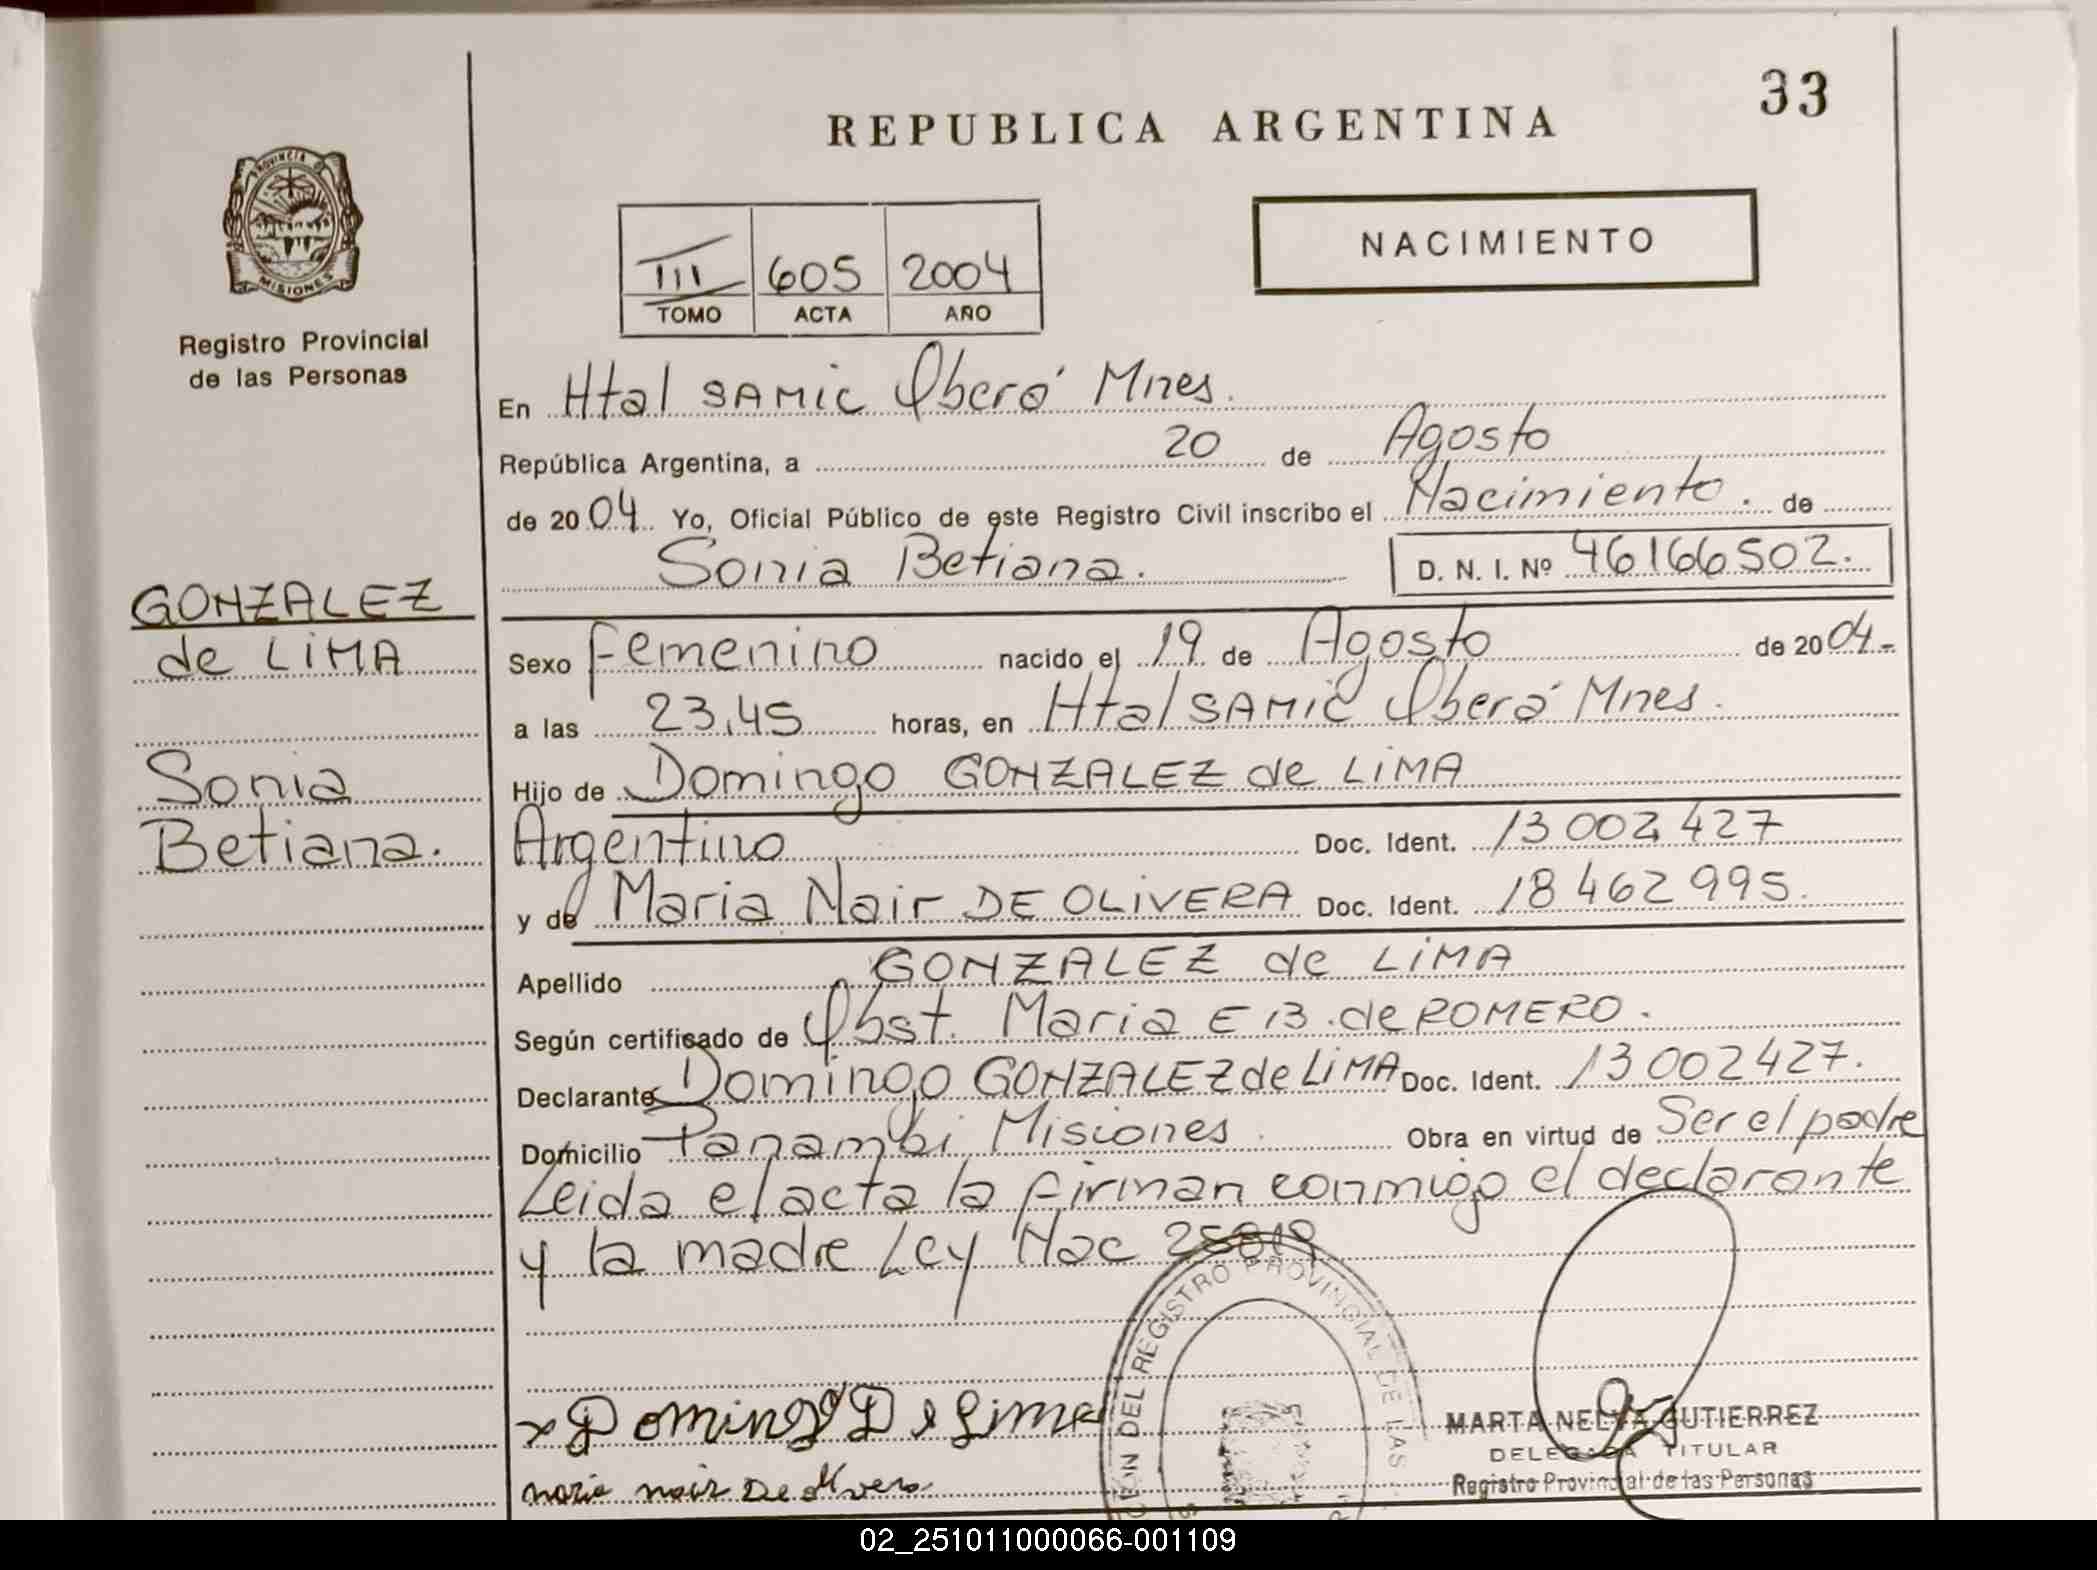 33
REPUBLICA ARGENTINA
PROVINCIA DE
MISIONES
NACIMIENTO
III 605 2004
TOMO ACTA AÑO
Registro Provincial
de las Personas
En Htal SAMIC Oberá Mnes.
República Argentina, a 20 de Agosto
de 2004 Yo, Oficial Público de este Registro Civil inscribo el Nacimiento. de
Sonia Betiana. D. N. I. Nº 46166502.
GONZALEZ
de LiMA
Sonia
Betiana.
Sexo Femenino nacido el 19 de Agosto de 2004.-
a las 23,45 horas, en Htal SAMIC Oberá Mnes.
Hijo de Domingo GONZALEZ de LiMA
Argentino Doc. Ident. 13 002 427
y de Maria Nair DE OLiVERA Doc. Ident. 18 462 995.
Apellido GONZALEZ de LiMA
Según certificado de Obst. Maria E B. de ROMERO.
Declarante Domingo GONZALEZ de LiMA Doc. Ident. 13 002 427.
Domicilio Panambi Misiones. Obra en virtud de Ser el padre
Leida el acta la firman conmigo el declarante
y la madre Ley Nac 25819
REGISTRO PROVINCIAL DE LAS
x Domingo De Lima
maria nair De Olivera
MARTA NELVA GUTIERREZ
DELEGADA TITULAR
Registro Provincial de las Personas
02_251011000066-001109